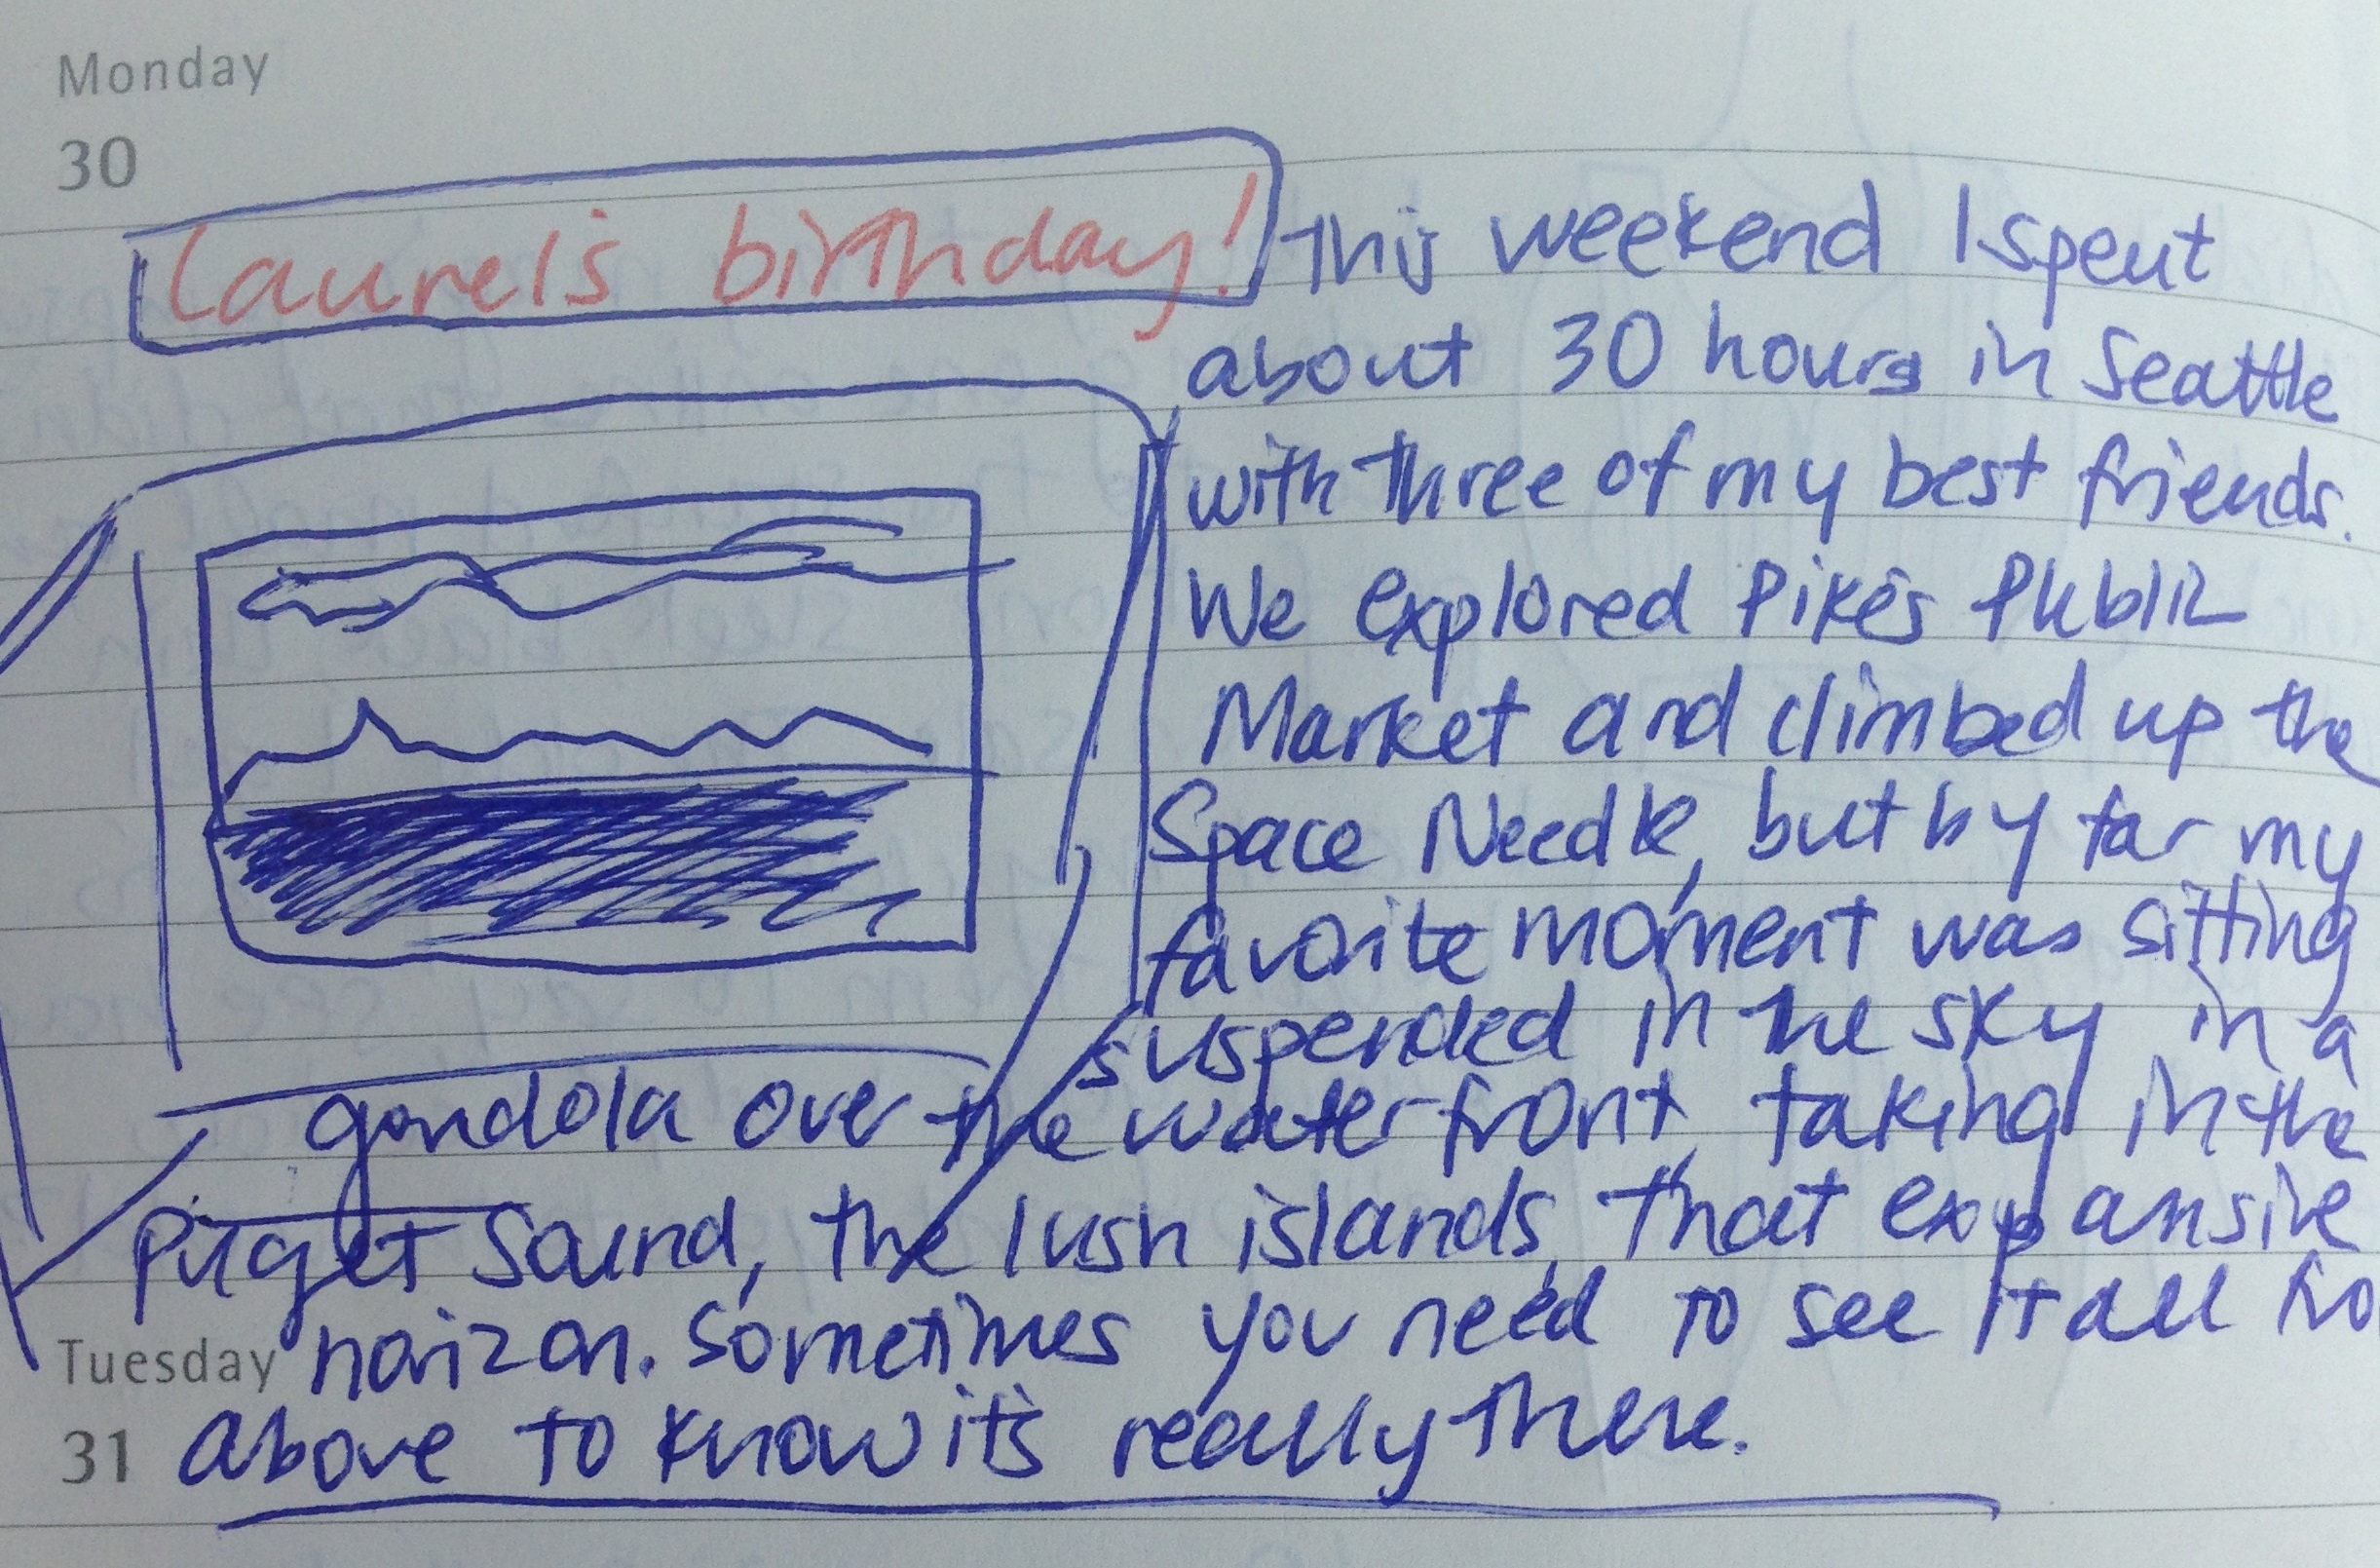 Monday
30
Laurel's birthday!
This weekend I spent
about 30 hours in Seattle
with three of my best friends.
We explored Pike's Public
Market and climbed up the
Space Needle, but by far my
favorite moment was sitting
suspended in the sky in a
gondola over the waterfront, taking in the
Puget Sound, the lush islands, that expansive
horizon. Sometimes you need to see it all fro
Tuesday
31
above to know it's really there.